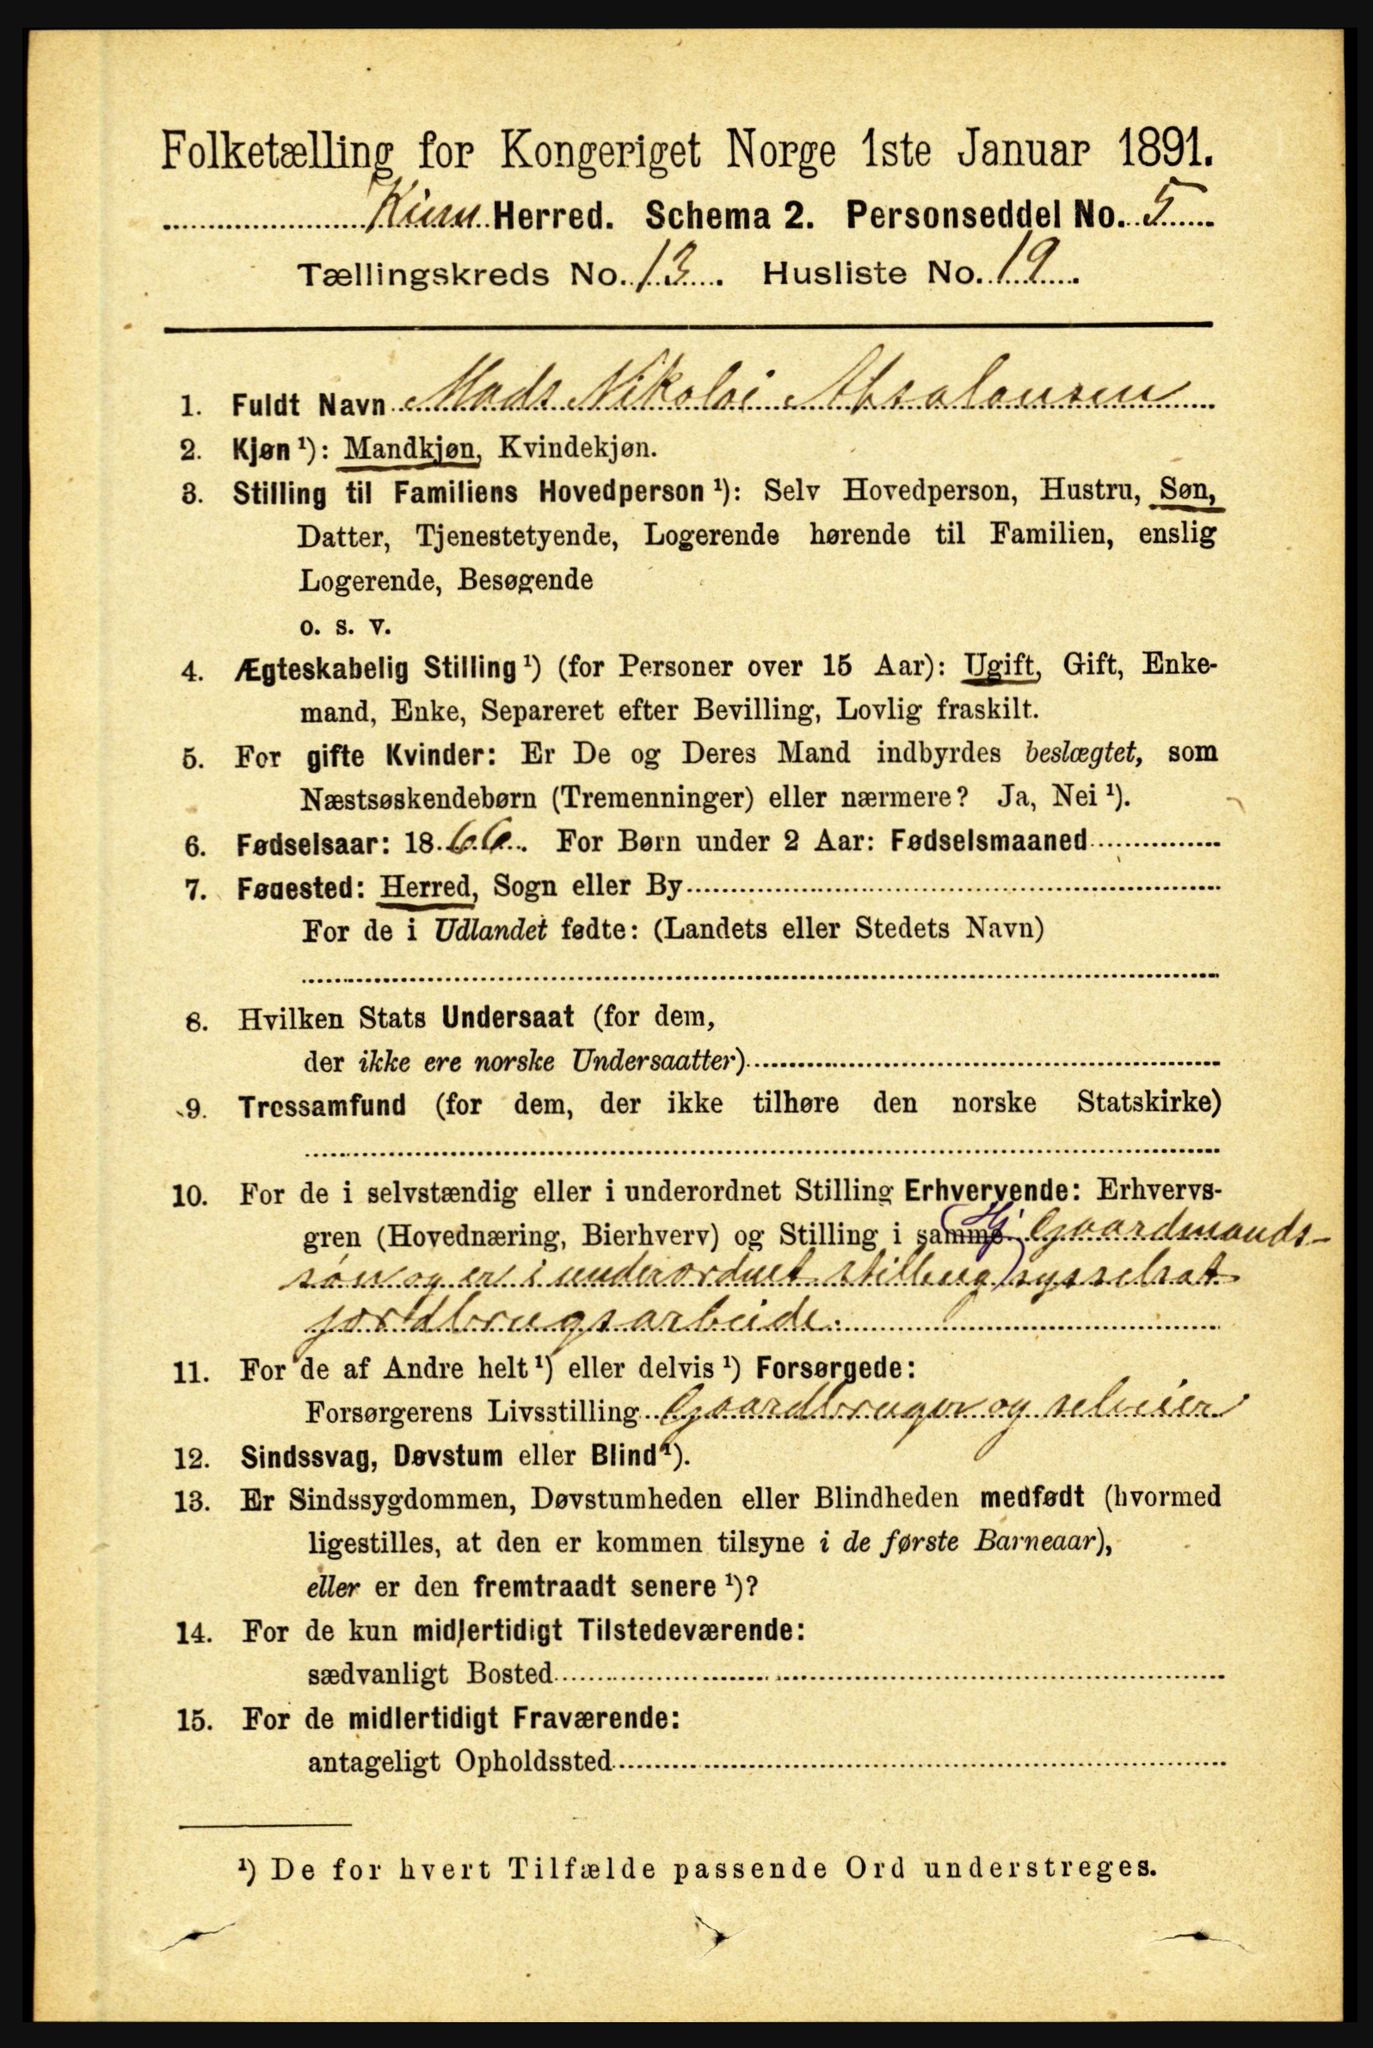 Folketælling for Kongeriget Norge 1ste Januar 1891.
Kinn Herred. Schema 2. Personseddel No. 5
Tællingskreds No. 13. Husliste No. 19
1. Fuldt Navn Mads Nikolai Absalonsen
2. Kjøn ¹): Mandkjøn, Kvindekjøn.
3. Stilling til Familiens Hovedperson ¹): Selv Hovedperson, Hustru, Søn,
Datter, Tjenestetyende, Logerende hørende til Familien, enslig
Logerende, Besøgende
o. s. v.
4. Ægteskabelig Stilling ¹) (for Personer over 15 Aar): Ugift, Gift, Enke-
mand, Enke, Separeret efter Bevilling, Lovlig fraskilt.
5. For gifte Kvinder: Er De og Deres Mand indbyrdes beslægtet, som
Næstsøskendebørn (Tremenninger) eller nærmere? Ja, Nei ¹).
6. Fødselsaar: 1866. For Børn under 2 Aar: Fødselsmaaned
7. Fødested: Herred, Sogn eller By
For de i Udlandet fødte: (Landets eller Stedets Navn)
8. Hvilken Stats Undersaat (for dem,
der ikke ere norske Undersaatter)
9. Trossamfund (for dem, der ikke tilhøre den norske Statskirke)
10. For de i selvstændig eller i underordnet Stilling Erhvervende: Erhvervs-
gren (Hovednæring, Bierhverv) og Stilling i samme Gaardmands-
søn og er i underordnet stilling sysselsat
jordbrugsarbeide.
11. For de af Andre helt ¹) eller delvis ¹) Forsørgede:
Forsørgerens Livsstilling Gaardbruger og selveier
12. Sindssvag, Døvstum eller Blind ¹).
13. Er Sindssygdommen, Døvstumheden eller Blindheden medfødt (hvormed
ligestilles, at den er kommen tilsyne i de første Barneaar),
eller er den fremtraadt senere ¹)?
14. For de kun midlertidigt Tilstedeværende:
sædvanligt Bosted
15. For de midlertidigt Fraværende:
antageligt Opholdssted
¹) De for hvert Tilfælde passende Ord understreges.